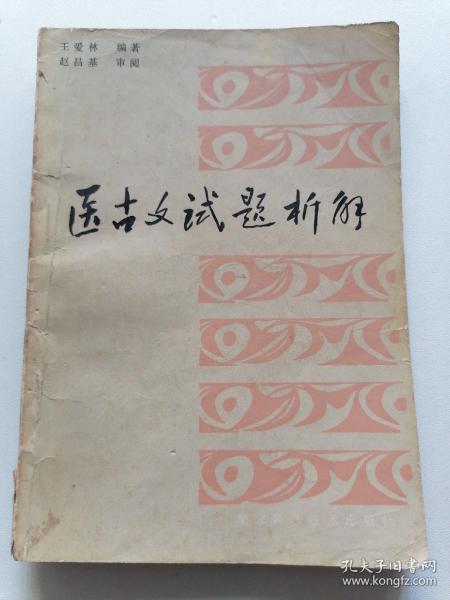 王爱林 编著
赵昌基 审阅
医古文试题析解
孔夫子旧书网
www.kongfz.com